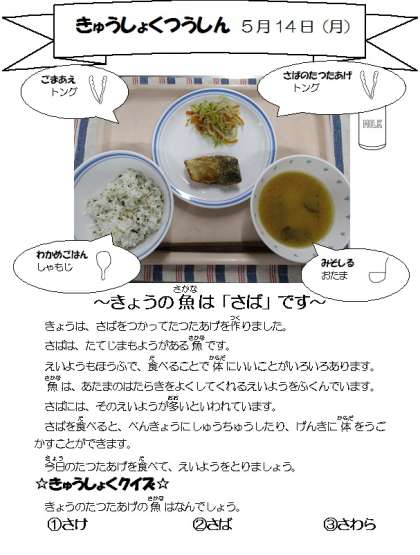 きゅうしょくつうしん 5月14日（月）
ごまあえ
トング
さばのたつたあげ
トング
MILK
わかめごはん
しゃもじ
みそしる
おたま
～きょうの魚は「さば」です～
きょうは、さばをつかってたつたあげを作りました。
さばは、たてじまもようがある魚です。
えいようもほうふで、食べることで体にいいことがいろいろあります。
魚は、あたまのはたらきをよくしてくれるえいようをふくんでいます。
さばには、そのえいようが多いといわれています。
さばを食べると、べんきょうにしゅうちゅうしたり、げんきに体をうご
かすことができます。
今日のたつたあげを食べて、えいようをとりましょう。
☆きゅうしょくクイズ☆
きょうのたつたあげの魚はなんでしょう。
①さけ ②さば ③さわら